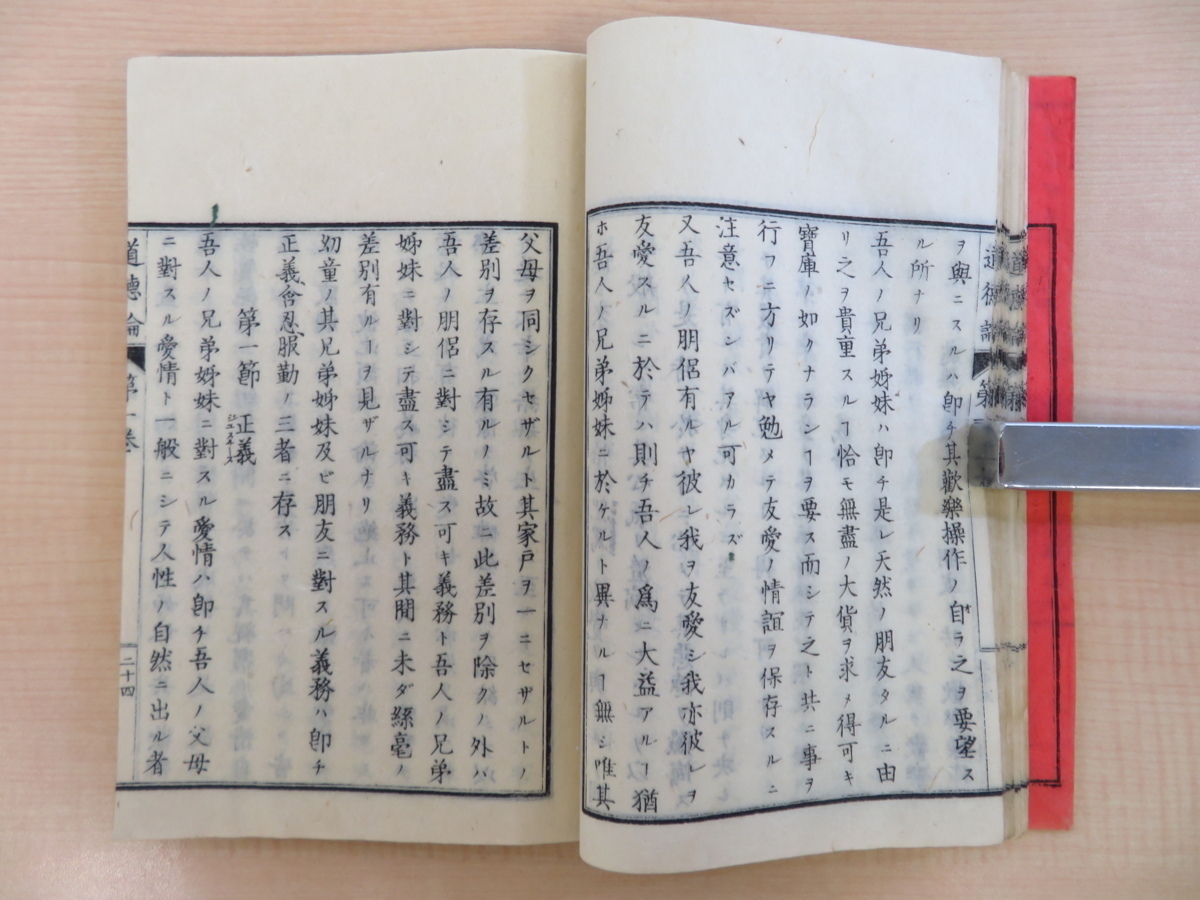 ヲ與ニスルハ卽チ其歡樂操作ノ自ラ之ヲ要望ス
ル所ナリ
吾人ノ兄弟姊妹ハ卽チ是レ天然ノ朋友タルニ由
リ之ヲ貴重スルヿ恰モ無盡ノ大貨ヲ求メ得可キ
寶庫ノ如クナランヿヲ要ス而シテ之ト共ニ事ヲ
行フニ方リテヤ勉メテ友愛ノ情誼ヲ保存スルニ
注意セズンバアル可カラズ
又吾人ノ朋侶有ルヤ彼レ我ヲ友愛シ我亦彼レヲ
友愛スルニ於テハ則チ吾人ノ爲ニ大益アルヿ猶
ホ吾人ノ兄弟姊妹ニ於ケルト異ナルヿ無シ唯其
父母ヲ同シクセザルト其家戶ヲ一ニセザルトノ
差別ヲ存スル有ルノミ故ニ此差別ヲ除クノ外ハ
吾人ノ朋侶ニ對シテ盡ス可キ義務ト吾人ノ兄弟
姊妹ニ對シテ盡ス可キ義務ト其間ニ未ダ絲毫ノ
差別有ルヿヲ見ザルナリ
幼童ノ其兄弟姊妹及ビ朋友ニ對スル義務ハ卽チ
正義、含忍、服勤ノ三者ニ存ス
第一節 正義
ジユスチース
吾人ノ兄弟姊妹ニ對スル愛情ハ卽チ吾人ノ父母
ニ對スル愛情ト一般ニシテ人性ノ自然ニ出ル者
道德論 第一卷
二十四